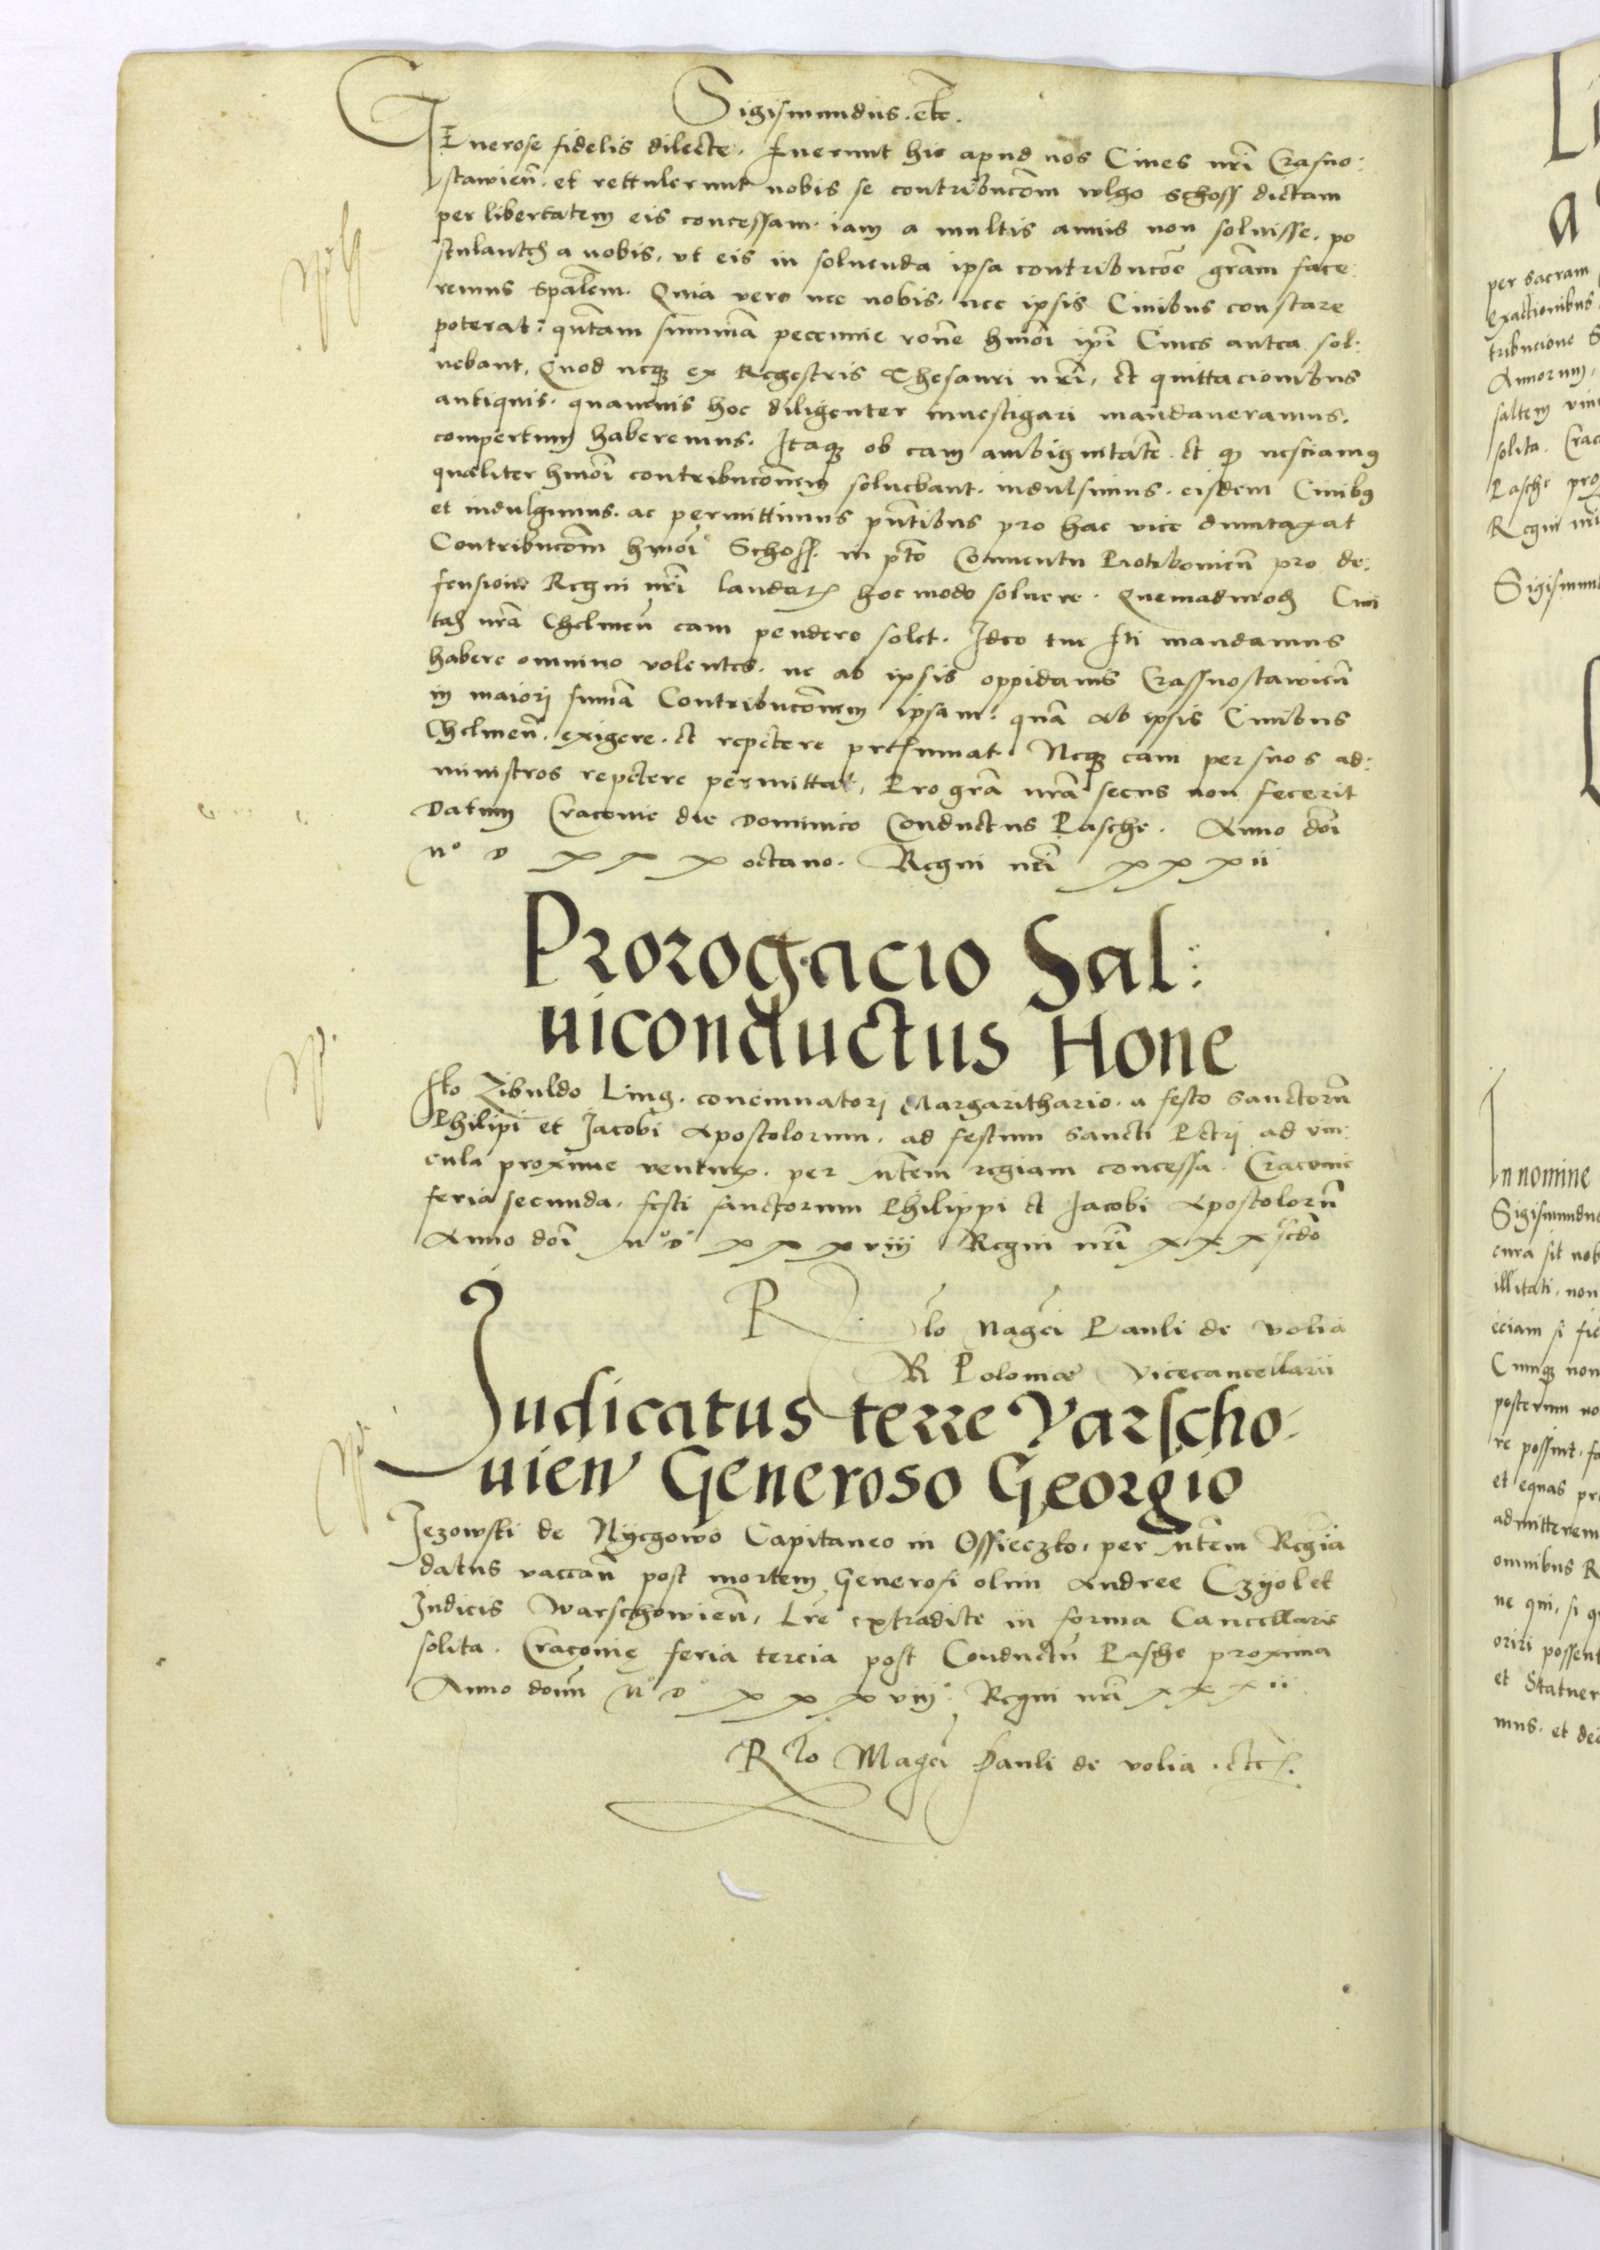 Sigismundus. etc.
GEnerose fidelis dilecte. Fuerunt hic apud nos Ciues nri Crasno:
stawien. et rettulerunt nobis se contribucom wlgo schoss dictam
per libertatem eis concessam. iam a multis annis non soluisse. po
stulantes a nobis, vt eis in soluenda ipsa contribucoe gram face
remus spalem. Quia vero nec nobis. nec ipsis Ciuibus constare
poterat: quntam summa peccunie rone hmoi ipi Ciues antea sol:
uebant, Quod neq ex Regestris Thesauri nri, et quittacionibus
antiquis. quamuis hoc diligenter inuestigari mandaueramus.
compertum haberemus. Itaq ob eam ambiguitate. et q nesciamus
qualiter hmoi contribuconem soluebant. indulsimus. eisdem Ciuibus
et indulgimus. ac permittimus pntibus pro hac vice duntaxat
Contribucom hmoi Schoss. in pto Conuentu Piotrkouien pro de:
fensione Regni nri laudat hoc modo soluere. Quemadmod Ciui
tas nra Chelmen eam pendere solet. Ideo tue sti mandamus
habere omnino volentes. ne ab ipsis oppidanis Crassnostawien
in maiori suma Contribuconem ipsam: qua ab ipsis Ciuibus
Chelmen. exigere. et repetere presumat. Neq eam per suos ad:
ministros repetere permittat, Pro gra nra secus non fecerit
Datum Cracouie die Dominico Conductus Pasche. Anno doi
Mo D xxx octauo. Regni nri xxxii
Prorogacio Sal:
uiconductus Hone
sto Zibuldo Ling. concinnatori Margarithario. a festo sanctorum
Philipi et Jacobi Apostolorum. ad festum sancti Petri ad vin:
cula proxime ventur. per Mtem regiam concessa. Cracouie
feria secunda. festi sanctorum Philippi et Jacobi Apostolorum
Anno doi Mo Do xxxviii Regni nri xxx scdo
R lo Magci Pauli de Volia
R Polonie Vicecancellarii
Judicatus terre Varscho.
uien Generoso Georgio
Jezowski de Nyegowo Capitaneo in Ossieczko, per Mtem Regia
datus vaccan post mortem Generosi olim Andree Czyolek
Judicis Warschowien, Lre extradite in forma Cancellarie
solita. Cracouie feria tercia post Conductu Pasche proxima
Anno domi Mo Do xxxviii. Regni nri xxxii
R lo Magci Pauli de volia. etc.